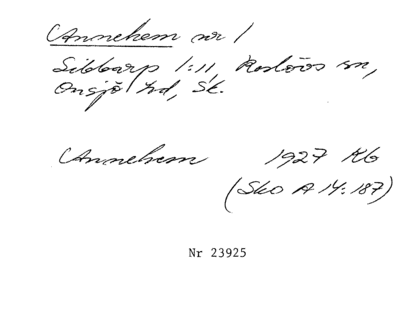 Annehem nr 1
Sibbarp 1:11, Röstöös sn,
Onsjö hd, Sk.
Annehem 1927 Kb
(Sko A 14:187)
Nr 23925